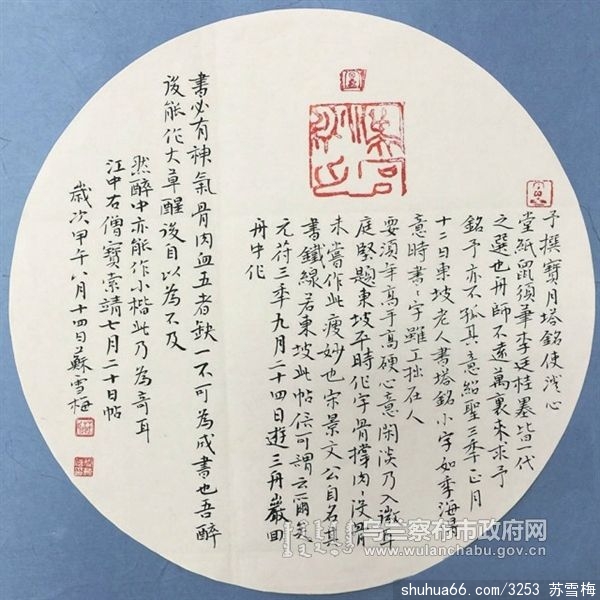 予撰寶月塔銘使澄心
堂紙鼠須筆李廷桂墨皆一代
之選也舟師不遠萬裏來求予
銘予亦不孤其意紹聖三季正月
十二日東坡老人書塔銘小字如季海得
意時書〻字雖工拙在人
要須年高手高硬心意閑淡乃入微耳
庭堅題東坡平時作字骨撐肉沒骨
未嘗作此瘦妙也宋景文公自名其
書鐵線若東坡此帖信可謂云爾矣
元苻三季九月二十四日遊三舟巖回
舟中作
書必有神氣骨肉血五者缺一不可為成書也吾醉
後能作大草醒後自以為不及
然醉中亦能作小楷此乃為奇耳
江中右僧寶索靖七月二十日帖
歲次甲午八月十四日蘇雪梅
乌兰察布市政府网
www.wulanchabu.gov.cn
shuhua66.com/3253 苏雪梅